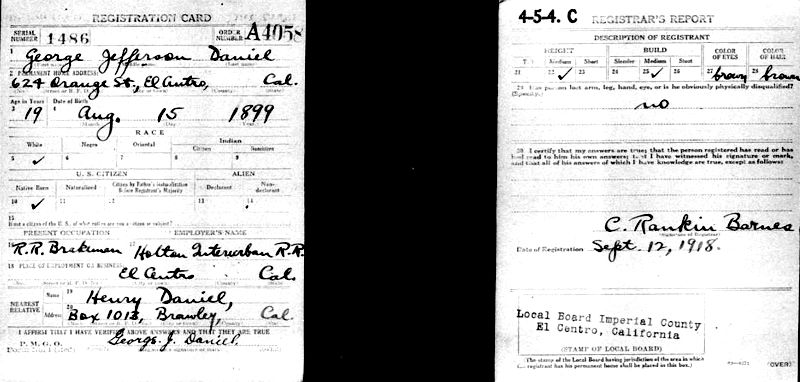 REGISTRATION CARD
SERIAL NUMBER 1486 ORDER NUMBER A4058
1 George Jefferson Daniel
2 PERMANENT HOME ADDRESS:
624 Orange St., El Centro, Cal.
Age in Years Date of Birth
3 19 4 Aug. 15 1899
RACE
White Negro Oriental Indian
Citizen
5 ✓ 6 7 8 9
U. S. CITIZEN ALIEN
Native Born Naturalized Citizen by Father's Naturalization Before Registrant's Majority Declarant Non-declarant
10 ✓ 11 12 13 14
15
If not a citizen of the U. S. of what nation are you a citizen or subject?
PRESENT OCCUPATION EMPLOYER'S NAME
16 R.R. Brakeman 17 Holton Interurban R.R.
18 PLACE OF EMPLOYMENT OR BUSINESS
El Centro Cal.
NEAREST RELATIVE Name 19 Henry Daniel,
Address 20 Box 1013, Brawley, Cal.
I AFFIRM THAT I HAVE VERIFIED ABOVE ANSWERS AND THAT THEY ARE TRUE
P. M. G. O.
George J. Daniel.
4-5-4. C REGISTRAR'S REPORT
DESCRIPTION OF REGISTRANT
HEIGHT BUILD COLOR OF EYES COLOR OF HAIR
Medium Short Slender Medium Stout
21 22 ✓ 23 24 25 ✓ 26 27 brown 28 brown
29 Has person lost arm, leg, hand, eye, or is he obviously physically disqualified?
(Specify.)
no
30 I certify that my answers are true; that the person registered has read or has
had read to him his own answers; that I have witnessed his signature or mark,
and that all of his answers of which I have knowledge are true, except as follows:
C. Rankin Barnes
Date of Registration Sept. 12, 1918.
Local Board Imperial County
El Centro, California
(STAMP OF LOCAL BOARD)
(The stamp of the Local Board having jurisdiction of the area in which
the registrant has his permanent home shall be placed in this box.)
(OVER)